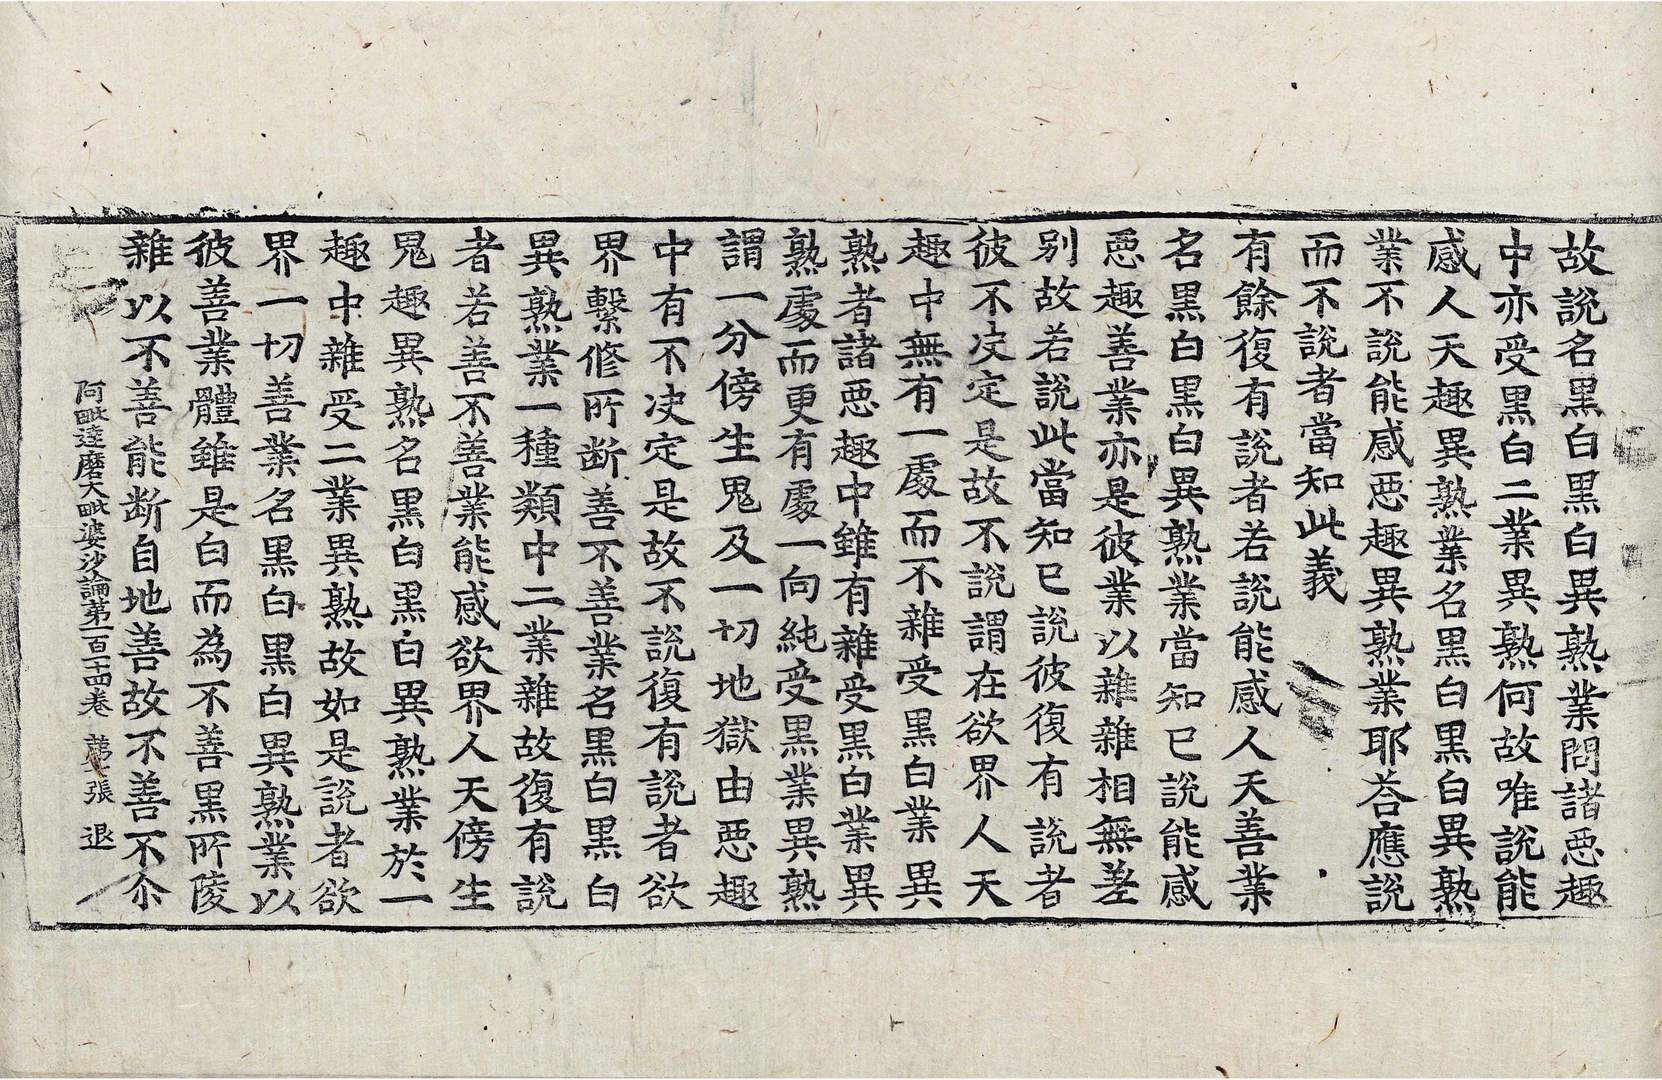 故説名黒白黒白異熟業問諸惡趣
中亦受黒白二業異熟何故唯説能
感人天趣異熟業名黒白黒白異熟
業不説能感惡趣異熟業耶荅應説
而不説者當知此義
有餘復有説者若説能感人天善業
名黒白黒白異熟業當知已説能感
惡趣善業亦是彼業以雜雜相無差
别故若説此當知已説彼復有説者
彼不决定是故不説謂在欲界人天
趣中無有一處而不雜受黒白業異
熟者諸惡趣中雖有雜受黒白業異
熟處而更有處一向純受黒業異熟
謂一分傍生鬼及一切地獄由惡趣
中有不决定是故不説復有説者欲
界繫修所断善不善業名黒白黒白
異熟業一種類中二業雜故復有説
者若善不善業能感欲界人天傍生
鬼趣異熟名黒白黒白異熟業於一
趣中雜受二業異熟故如是説者欲
界一切善業名黒白黒白異熟業以
彼善業體雖是白而為不善黒所陵
雜以不善能断自地善故不善不尒
阿毗達磨大毗婆沙論第一百一十四卷 第二張 退